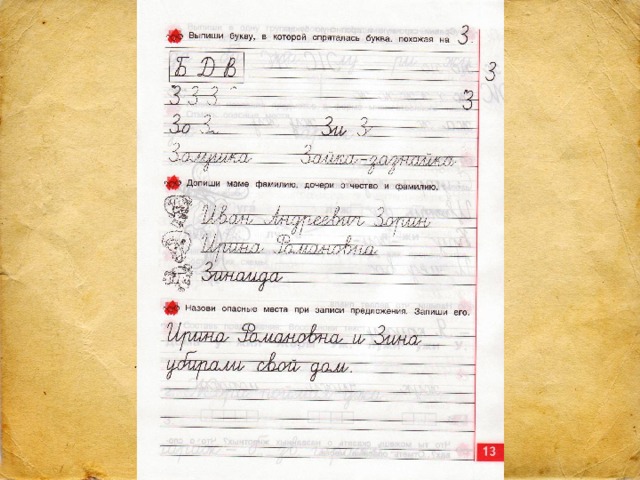 Выпиши букву, в которой спряталась буква, похожая на З.
Б Д В
З
З З З
З
Зо З Зи З
Золушка Зайка-зазнайка
Допиши маме фамилию, дочери отчество и фамилию.
Иван Андреевич Зорин
Ирина Романовна
Зинаида
Назови опасные места при записи предложения. Запиши его.
Ирина Романовна и Зина
убирали свой дом.
13